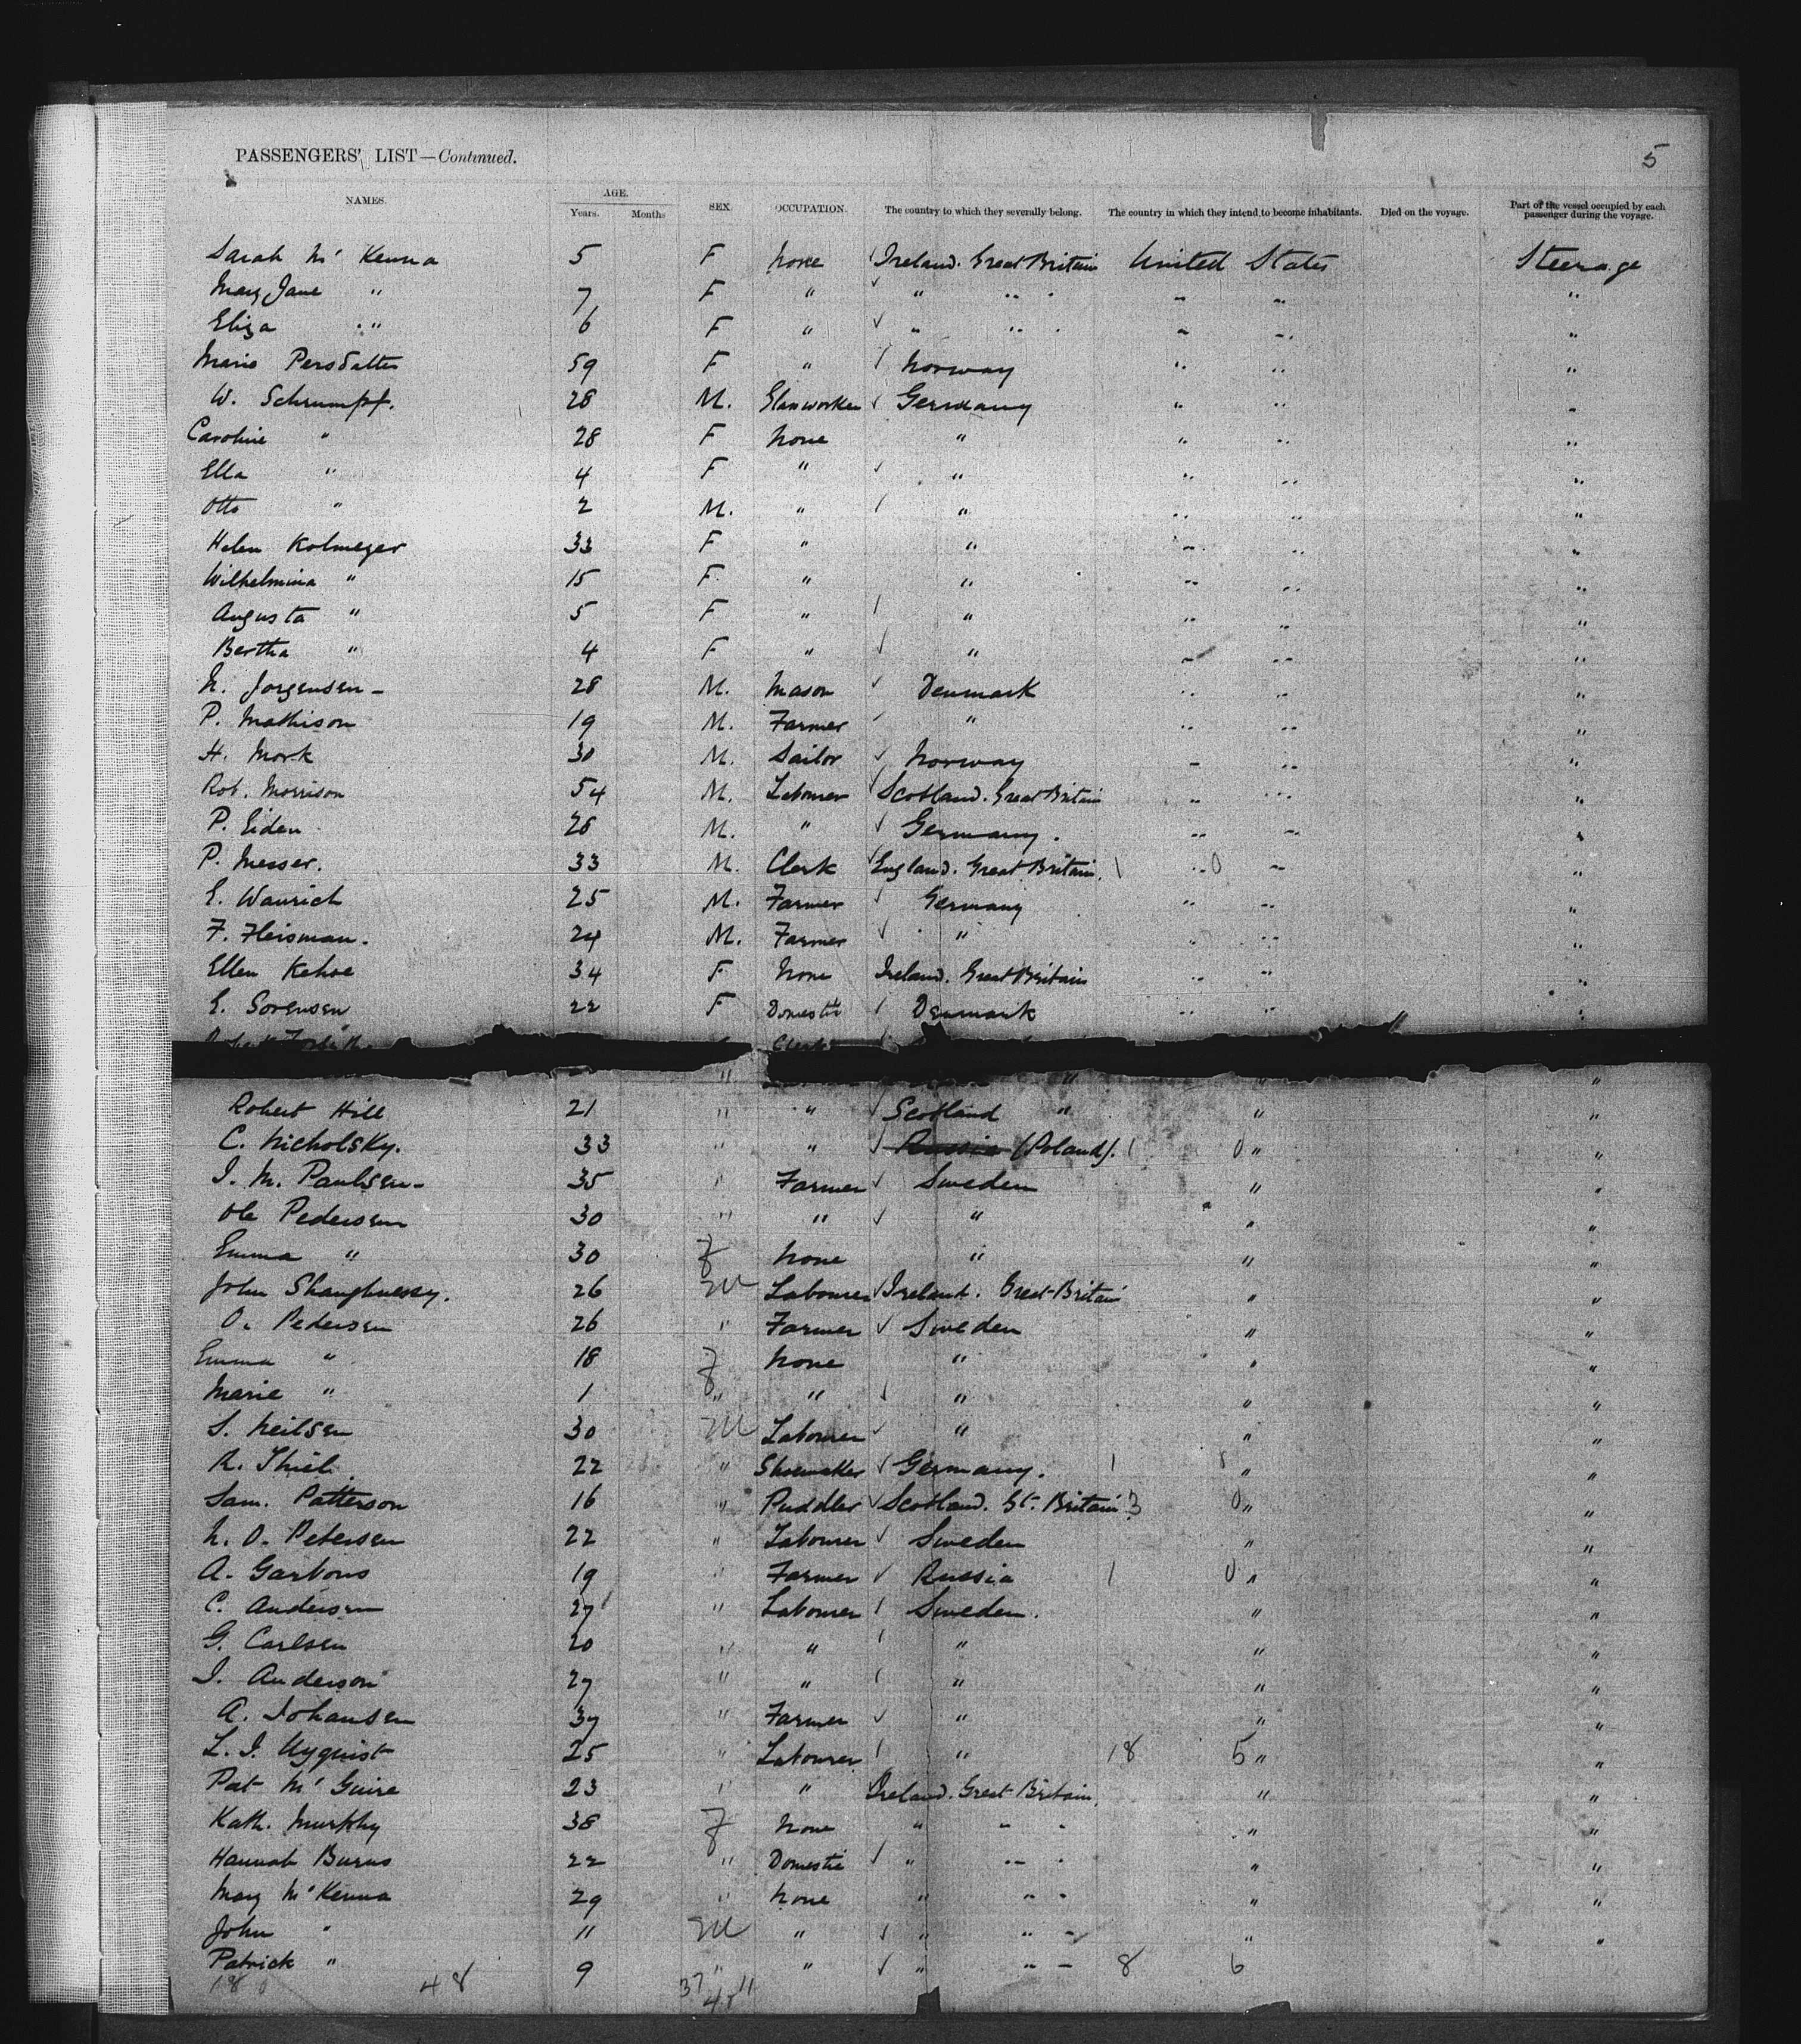 PASSENGERS' LIST—Continued. 5
NAMES. AGE. Years. Months SEX. OCCUPATION. The country to which they severally belong. The country in which they intend to become inhabitants. Died on the voyage. Part of the vessel occupied by each passenger during the voyage.
Sarah Mc Kenna 5 F None Ireland. Great Britain United States Steerage
Mary Jane " 7 F " " " " " "
Eliza " 6 F " " " " " "
Maris Persdatter 59 F " Norway " " "
W. Schrumpf. 28 M. Glassworker Germany " " "
Caroline " 28 F None " " " "
Ella " 4 F " " " " "
Otto " 2 M. " " " " "
Helen Kolmeyer 33 F " " " " "
Wilhelmina " 15 F " " " " "
Augusta " 5 F " " " " "
Bertha " 4 F " " " " "
N. Jorgensen 28 M. Mason Denmark " " "
P. Mathison 19 M. Farmer " " " "
H. Mork 30 M. Sailor Norway " " "
Rob. Morrison 54 M. Labourer Scotland. Great Britain " " "
P. Eiden 28 M. " Germany. " " "
P. Messer. 33 M. Clerk England. Great Britain. 1 " 0 " "
E. Wanrich 25 M. Farmer Germany " " "
F. Fleisman. 24 M. Farmer " " " "
Ellen Kehoe 34 F None Ireland. Great Britain " " "
E. Sorensen 22 F Domestic Denmark " " "
Clerk
" " " "
Robert Hill 21 " " Scotland " " "
C. Nicholsky. 33 " " Russia (Poland). 1 0 " "
I. M. Paulsen 35 " Farmer Sweden " "
Ole Pedersen 30 " " " " "
Emma " 30 F None " " "
John Shaughnessy. 26 M Labourer Ireland. Great Britain " "
O. Pedersen 26 " Farmer Sweden " "
Emma " 18 F None " " "
Marie " 1 " " " " "
S. Neilsen 30 M Labourer " " "
R. Thiel 22 " Shoemaker Germany. 1 " "
Sam. Patterson 16 " Puddler Scotland. Gt. Britain 3 0 " "
N. O. Petersen 22 " Labourer Sweden " "
A. Garbous 19 " Farmer Russia 1 0 " "
C. Andersen 27 " Labourer Sweden. " "
G. Carlsen 20 " " " " "
I. Anderson 27 " " " " "
A. Johansen 37 " Farmer " " "
L. I. Nyquist 25 " Labourer " 18 5 " "
Pat Mc Guire 23 " " Ireland. Great Britain. " "
Kath. Murphy 38 F None " " " " "
Hannah Burns 22 " Domestic " " " " "
Mary Mc Kenna 29 " None " " " " "
John " 11 M " " " " " "
Patrick " 9 " " " " " 8 6
48 37 11
48